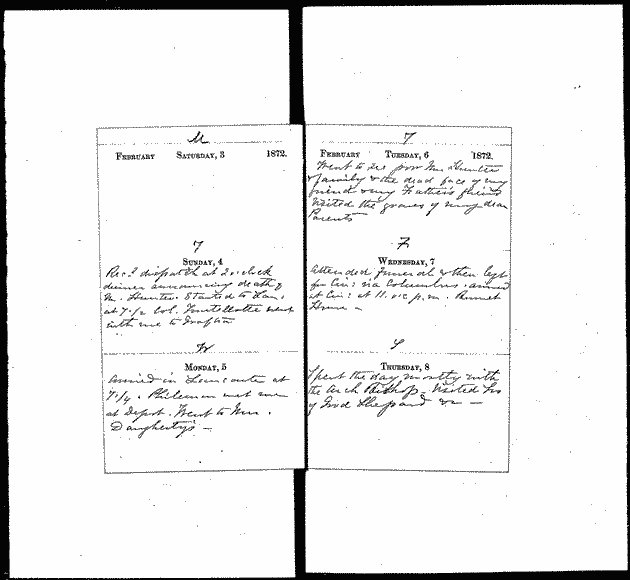 M
FEBRUARY SATURDAY, 3 1872.
T
SUNDAY, 4
Rec'd dispatch at 2 o'clock
dinner announcing death of
M. Hunter. Started to Lan.
at 7½ o'cl. went
with me to Grafton
W
MONDAY, 5
Arrived in Lancaster at
7¼. Phileman met me
at Depot. Went to Mrs.
Daugherty's —
T
FEBRUARY TUESDAY, 6 1872.
Went to see poor Mrs. Hunter
& family & the dead face of my
friend & my Father's friend
Visited the graves of my dear
Parents
F
WEDNESDAY, 7
Attended Funeral & then left
for Cin: via Columbus. arrived
at Cin: at 11. o'c p.m. Burnet
House —
S
THURSDAY, 8
Spent the day mostly with
the Arch Bishop — Visited
of Good Shepard &c —